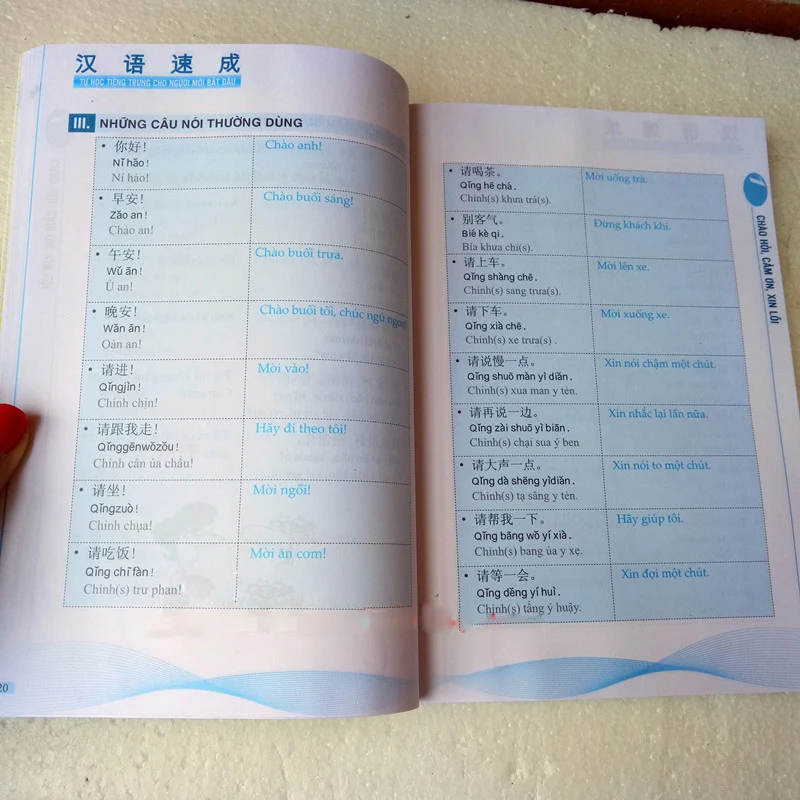 汉语速成
TỰ HỌC TIẾNG TRUNG CHO NGƯỜI MỚI BẮT ĐẦU
III. NHỮNG CÂU NÓI THƯỜNG DÙNG
• 你好! Chào anh!
Nǐ hǎo!
Nỉ hảo!
• 早安! Chào buổi sáng!
Zǎo an!
Chảo an!
• 午安! Chào buổi trưa.
Wǔ ān!
Ủ an!
• 晚安! Chào buổi tối, chúc ngủ ngon!
Wǎn ān!
Oản an!
• 请进! Mời vào!
Qǐngjìn!
Chỉnh chịn!
• 请跟我走! Hãy đi theo tôi!
Qǐnggēnwǒzǒu!
Chỉnh cân ủa chẩu!
• 请坐! Mời ngồi!
Qǐngzuò!
Chỉnh chụa!
• 请吃饭! Mời ăn cơm!
Qǐng chī fàn!
Chỉnh(s) trư phan!
20
• 请喝茶。 Mời uống trà.
Qǐng hē chá.
Chỉnh(s) khưa trá(s).
• 别客气。 Đừng khách khí.
Bié kè qi.
Bía khưa chi(s).
• 请上车。 Mời lên xe.
Qǐng shàng chē.
Chỉnh(s) sang trưa(s).
• 请下车。 Mời xuống xe.
Qǐng xià chē.
Chỉnh(s) xe trưa(s).
• 请说慢一点。 Xin nói chậm một chút.
Qǐng shuō màn yì diǎn.
Chỉnh(s) xua man y tẻn.
• 请再说一边。 Xin nhắc lại lần nữa.
Qǐng zài shuō yì biān.
Chỉnh(s) chại sua ý ben
• 请大声一点。 Xin nói to một chút.
Qǐng dà shēng yìdiǎn.
Chỉnh(s) tạ sâng y tẻn.
• 请帮我一下。 Hãy giúp tôi.
Qǐng bāng wǒ yí xià.
Chỉnh(s) bang ủa y xẹ.
• 请等一会。 Xin đợi một chút.
Qǐng děng yí huì.
Chỉnh(s) tẩng ý huậy.
1
CHÀO HỎI, CẢM ƠN, XIN LỖI